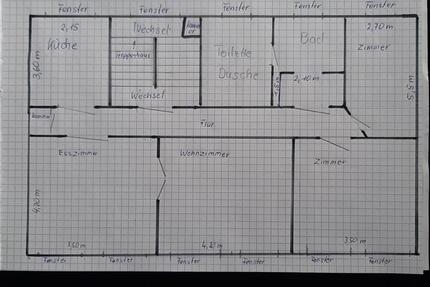 Fenster Fenster Fenster Fenster Fenster
2,15 Wechsel 2,70 m
Küche Toilette Bad Zimmer
Treppenhaus
3,60 m Dusche 2,10 m
Wechsel
Flur
Esszimmer Wohnzimmer Zimmer
4,20 m
3,50 m 4,20 m 3,50 m
Fenster Fenster Fenster Fenster Fenster Fenster